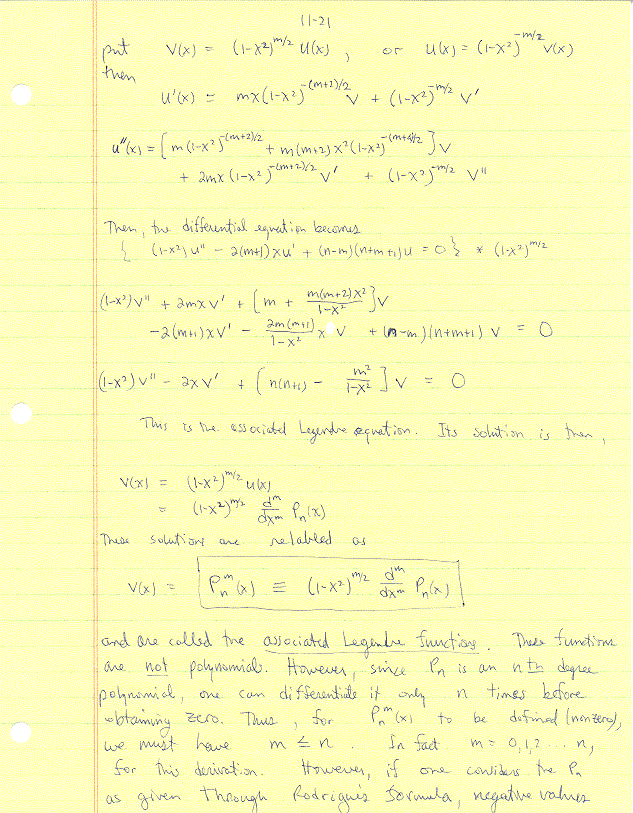 11-21
put V(x) = (1-x²)^{m/2} u(x) , or u(x) = (1-x²)^{-m/2} V(x)
then
u'(x) = mx(1-x²)^{-(m+2)/2} V + (1-x²)^{-m/2} V'
u''(x) = [ m(1-x²)^{-(m+2)/2} + m(m+2)x²(1-x²)^{-(m+4)/2} ] V
+ 2mx(1-x²)^{-(m+2)/2} V' + (1-x²)^{-m/2} V''
Then, the differential equation becomes
{ (1-x²)u'' - 2(m+1)xu' + (n-m)(n+m+1)u = 0 } * (1-x²)^{m/2}
(1-x²)V'' + 2mxV' + [ m + m(m+2)x²/(1-x²) ] V
-2(m+1)xV' - 2m(m+1)/(1-x²) x V + (n-m)(n+m+1) V = 0
(1-x²)V'' - 2xV' + [ n(n+1) - m²/(1-x²) ] V = 0
This is the associated Legendre equation. Its solution is then,
V(x) = (1-x²)^{m/2} u(x)
= (1-x²)^{m/2} d^m/dx^m P_n(x)
These solutions are relabled as
V(x) = P_n^m(x) ≡ (1-x²)^{m/2} d^m/dx^m P_n(x)
and are called the associated Legendre functions. These functions
are not polynomials. However, since P_n is an nth degree
polynomial, one can differentiate it only n times before
obtaining zero. Thus, for P_n^m(x) to be defined (nonzero),
we must have m ≤ n. In fact m = 0,1,2...n,
for this derivation. However, if one considers the P_n
as given through Rodrigue's formula, negative values